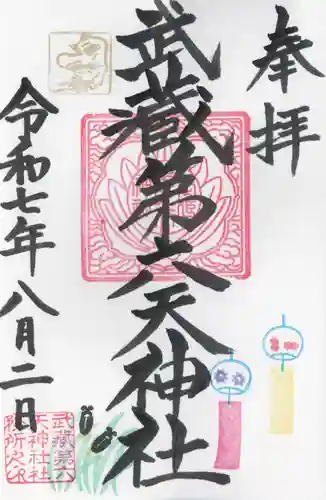 奉拝
武蔵第六天神社
令和七年八月二日
武蔵第六
天神社社
務所之印